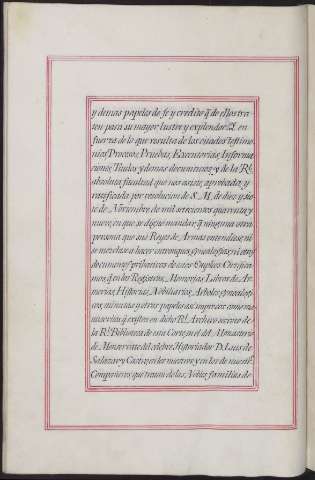 y demas papeles de fe y credito q.e de ellos tra-
ten para su mayor lustre y explendor. Y en
fuerza de lo que resulta de los citados Testimo-
nios, Procesos, Pruebas, Executorias, Informa-
ciones, Titulos, y demas documentos; y de la R.l
absoluta facultad que nos asiste, aprobada, y
ratificada por resolucion de S. M. de diez y sie-
te de Noviembre de mil setecientos quarenta y
nueve, en que se dignó mandar, q.e ninguna otra
persona que sus Reyes de Armas entendiese, ni
se mezclase a hacer entronques, genealogias, ni otros
documentos pribativos de estos Empleos: Certifica-
mos, q.e en los Registros, Memorias, Libros de Ar-
meria, Historias, Nobiliarios, Arboles genealogi-
cos, minutas y otros papeles asi impresos como ma-
nuscritos q.e existen en dicho R.l Archivo secreto de
la R.l Biblioteca de esta Corte, en el del Monasterio
de Monserrate del celebre Historiador D. Luis de
Salazar y Castro, en los nuestros y en los de nuest.s
Compañeros que tratan de las Nobles familias de